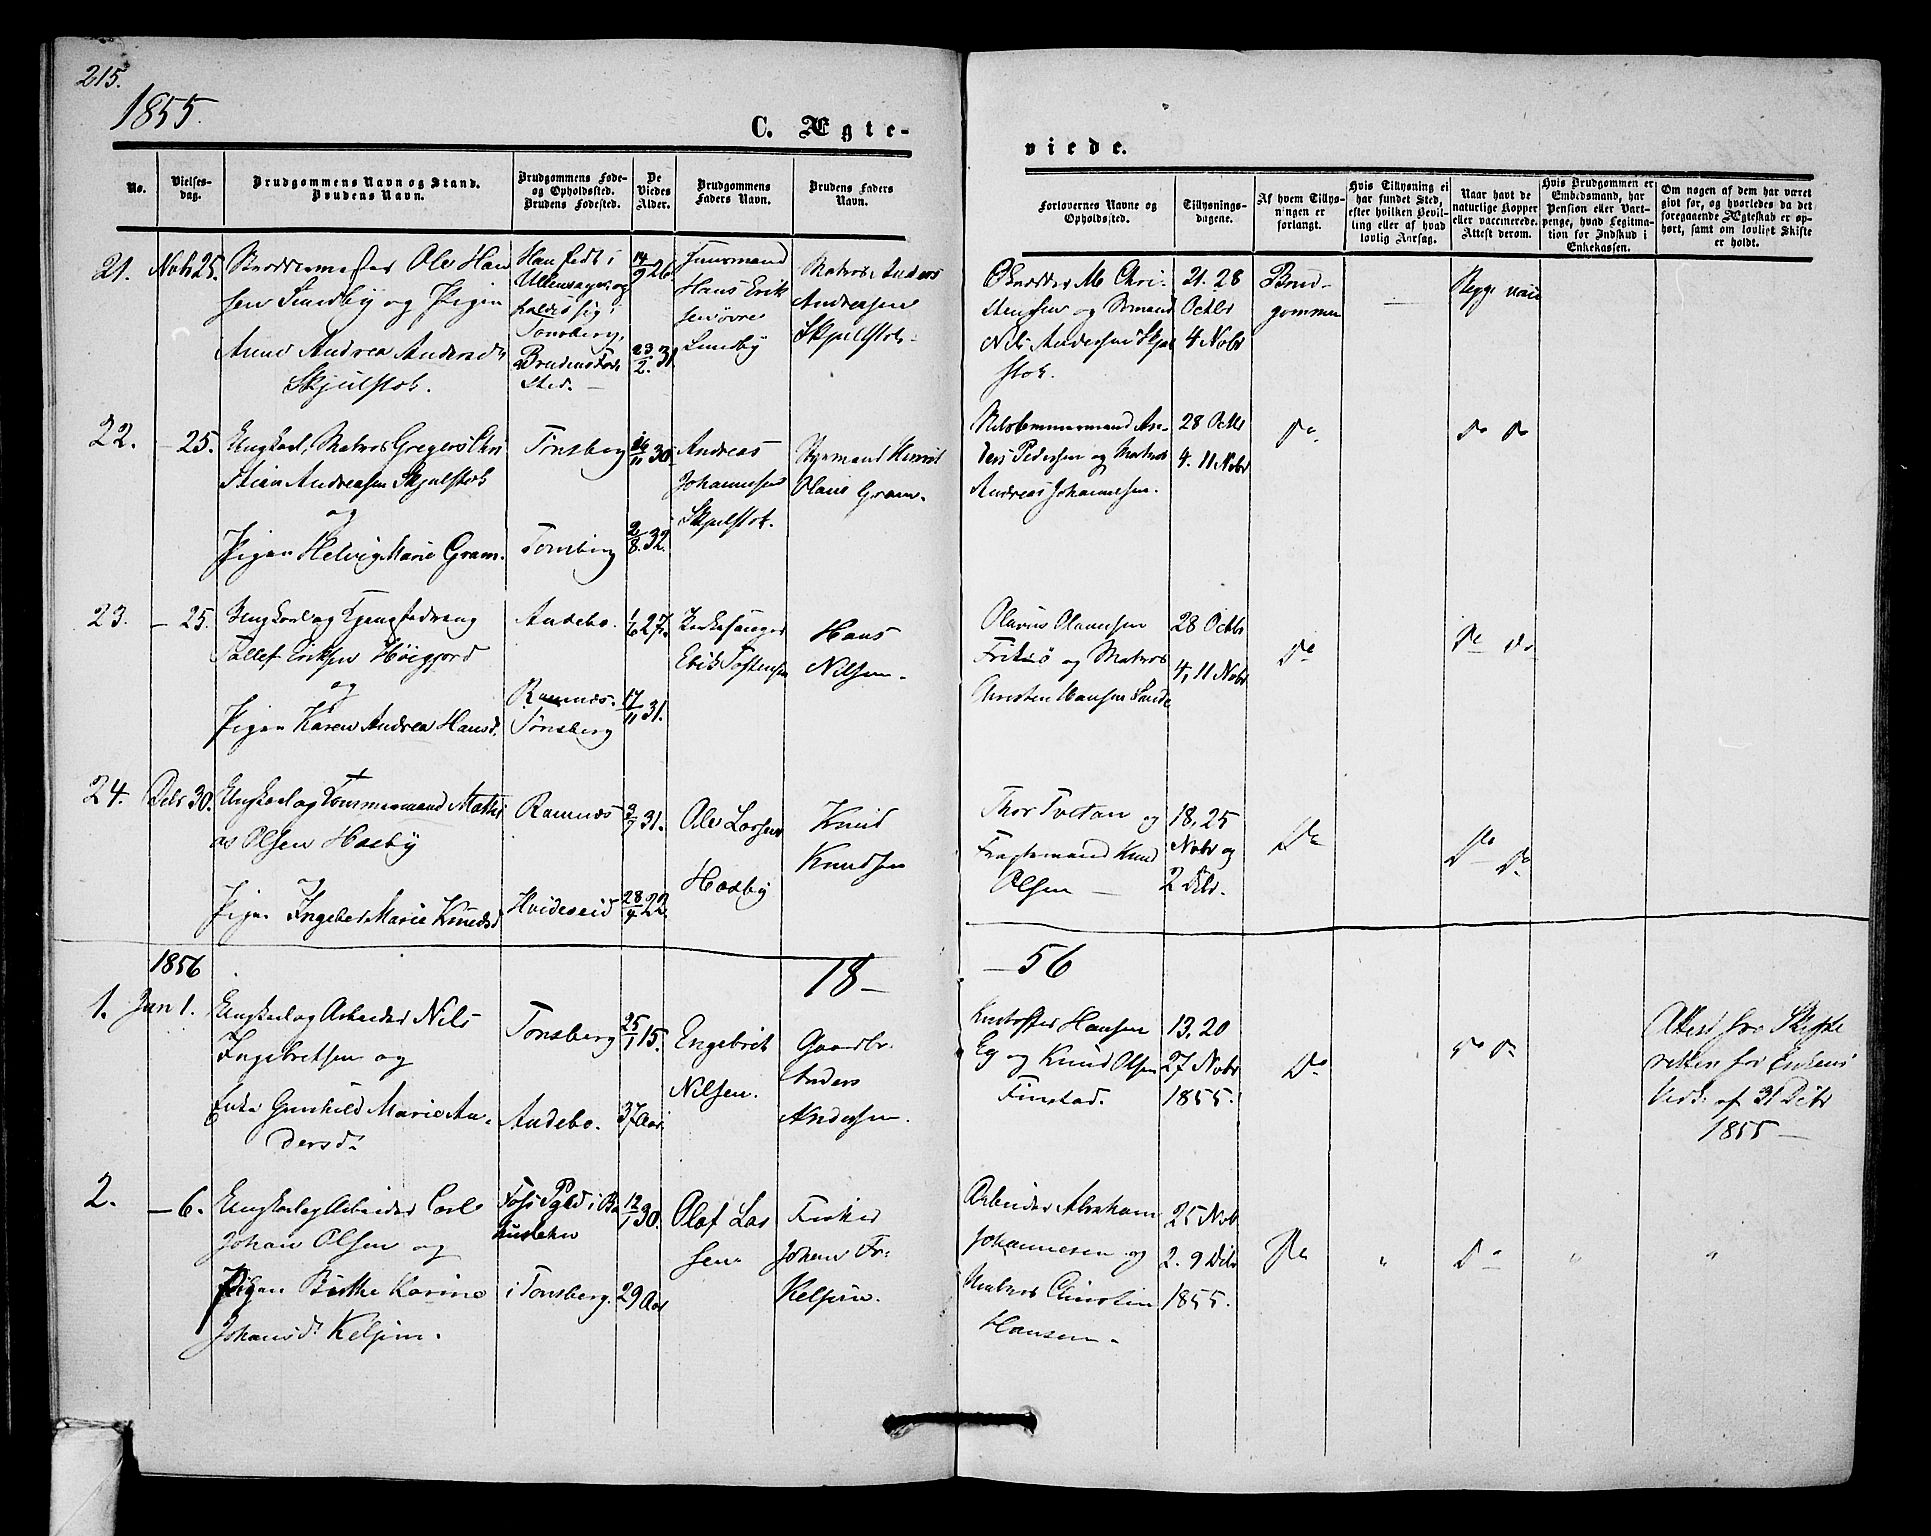 215.
1855.
C. Ægte-
No.
Vielses-
dag.
Brudgommens Navn og Stand.
Brudens Navn.
Brudgommens Føde-
og Opholdssted.
Brudens Fødested.
De
Viedes
Alder.
Brudgommens
Faders Navn.
Brudens Faders
Navn.
21. Novbr 25.
Ole Han
sen Lundby og Pigen
Anne Andrea Andersd.
Skjulstok.
Han født i
Ullensager og
Tonsberg.
Brudens Føde
Sted. —
14/9 26.
23/2. 31.
Huusmand
Hans Erik
sen øvre
Lundby
Matros Anders
Andreasen
Skjulstok.
22. — 25.
Ungkarl, Matros Gregers Chri
stian Andreasen Skjulstok
og
Pigen Helvig Marie Gram.
Tønsberg
Tønsberg
16/11 30.
2/8 32.
Andreas
Johannesen
Skjulstok.
Styrmand
Olaus Gram.
23. — 25.
Ungkarl og
Tollef Eriksen Høigjord
og
Pigen Karen Andrea Hansd.
Andebo.
Ramnes.
Tønsberg
1/6 27.
17/11 31.
Kirkesanger
Erik Tostensen
Hans
Nilsen.
24. Debr 30.
Ungkarl og Tømmermand Mathi
as Olsen Hasby
og
Pigen Ingebor Marie Knudsd
Ramnæs
Hvideseid
3/7 31.
28/4 22.
Ole Larsen
Hasby
Knud
Knudsen
1856
18 —
1. Jan 1.
Ungkarl og Arbeider Nils
Ingebretsen og
Enke Gunhild Marie An-
dersd.
Tønsberg
Andebo.
25/1 15.
37 Aar.
Engebrit
Nilsen.
Gaardbr.
Anders
Andersen.
2. — 6.
Ungkarl og Arbeider Carl
Johan Olsen og
Pigen Birthe Karine
Johansd. Kelpin.
i Tonsberg.
12/1 30.
29 Aar
Olaf Lar
sen
Fisker
Johan Fr.
Kelpin.
viede.
Forlovernes Navne og
Opholdssted.
Tillysnings-
dagene.
Af hvem Tillys-
ningen er
forlangt.
Hvis Tillysning ei
har fundet Sted,
efter hvilken Bevil-
ling eller af hvad
lovlig Aarsag.
Naar havt de
naturlige Kopper
eller vaccinerede.
Attest derom.
Hvis Brudgommen er
Embedsmand, har
Pension eller Vart-
penge, hvad Legitima-
tion for Indskud i
Enkekassen.
Om nogen af dem har været
givt før, og hvorledes da det
foregaaende Ægteskab er op-
hørt, samt om lovligt Skifte
er holdt.
M. Chri-
stensen og Sømand
Nils Andersen Skjul
stok.
21. 28
Octbr
4 Novbr
Brud-
gommen
—
Begge vacc
Anders Pedersen og Matros
Andreas Johannesen.
28 Octbr
4. 11 Nobr
Do
Do Do
Olavus Olavesen
og Matros
Christen Hansen Sande
28 Octbr
4, 11 Nobr
Do
Do Do
Thor Tvetan og
Fragtemand Knud
Olsen —
18, 25
Nobr og
2 Debr.
Do
Do Do
— 56
Kristoffer Hansen
Eg og Knud Olsen
Finstad.
13, 20
27 Nobr
1855.
Do
Do Do
Attest fra Skifte
retten for Enkens
Vedk. af 31 Debr
1855 —
Arbeider Abraham
Johannesen og
Matros Christian
Hansen.
25 Nobr
2. 9 Debr
1855.
Do
"
Do
"
"